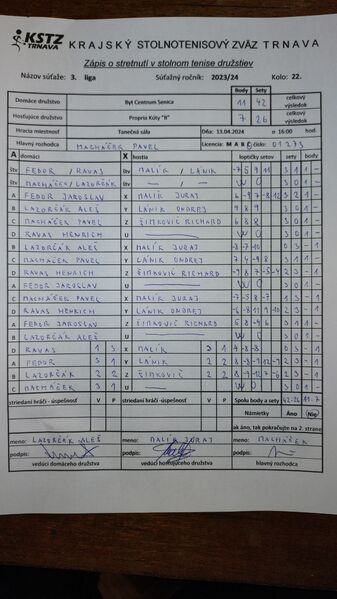 KSTZ
TRNAVA
KRAJSKÝ STOLNOTENISOVÝ ZVÄZ TRNAVA
Zápis o stretnutí v stolnom tenise družstiev
Názov súťaže: 3. liga Súťažný ročník: 2023/24 Kolo: 22.
Body Sety
Domáce družstvo Byt Centrum Senica 11 42 celkový výsledok
Hosťujúce družstvo Propria Kúty "B" 7 26 celkový výsledok
Hracia miestnosť Tanečná sála Dňa: 13.04.2024 o 16:00 hod.
Hlavný rozhodca MACHÁČEK PAVEL Licencia: M A B C číslo: 01273
A domáci X hostia loptičky setov sety body
štv FEDOR / RAVAS štv MALÍK / LÁNIK -7 5 9 11 3 1 1 -
štv MACHÁČEK/LAZORČÁK štv — / — WO 3 0 1 -
A FEDOR JAROSLAV X MALÍK JURAJ
B LAZORČÁK ALEŠ Y LÁNIK ONDREJ 9 8 9 3 0 1 -
C MACHÁČEK PAVEL Z ŠIMKOVIČ RICHARD 6 8 8 3 0 1 -
D RAVAS HENRICH U — WO 3 0 1 -
B LAZORČÁK ALEŠ X MALÍK JURAJ -8 -7 -10 0 3 - 1
C MACHÁČEK PAVEL Y LÁNIK ONDREJ 7 4 -9 8 3 1 1 -
D RAVAS HENRICH Z ŠIMKOVIČ RICHARD -9 8 7 -5 -4 2 3 - 1
A FEDOR JAROSLAV U — WO 3 0 1 -
C MACHÁČEK PAVEL X MALÍK JURAJ -7 -5 8 -7 1 3 - 1
D RAVAS HENRICH Y LÁNIK ONDREJ 2 3 - 1
A FEDOR JAROSLAV Z ŠIMKOVIČ RICHARD 5 8 -4 6 3 1 1 -
B LAZORČÁK ALEŠ U — WO 3 0 1 -
D RAVAS 1 3 X MALÍK 3 1 0 3 - 1
A FEDOR 3 1 Y LÁNIK 2 2 2 3 - 1
B LAZORČÁK 2 2 Z ŠIMKOVIČ 2 2 2 3 - 1
C MACHÁČEK 3 1 U — WO 3 0 1 -
striedaní hráči - úspešnosť V P striedaní hráči - úspešnosť V P Spolu body a sety 42-26 11-7
Námietky Áno Nie
ak áno, tak pokračujte na 2. strane
meno: LAZORČÁK ALEŠ meno: MALÍK JURAJ meno: MACHÁČEK
podpis: podpis: podpis:
vedúci domáceho družstva vedúci hosťujúceho družstva hlavný rozhodca